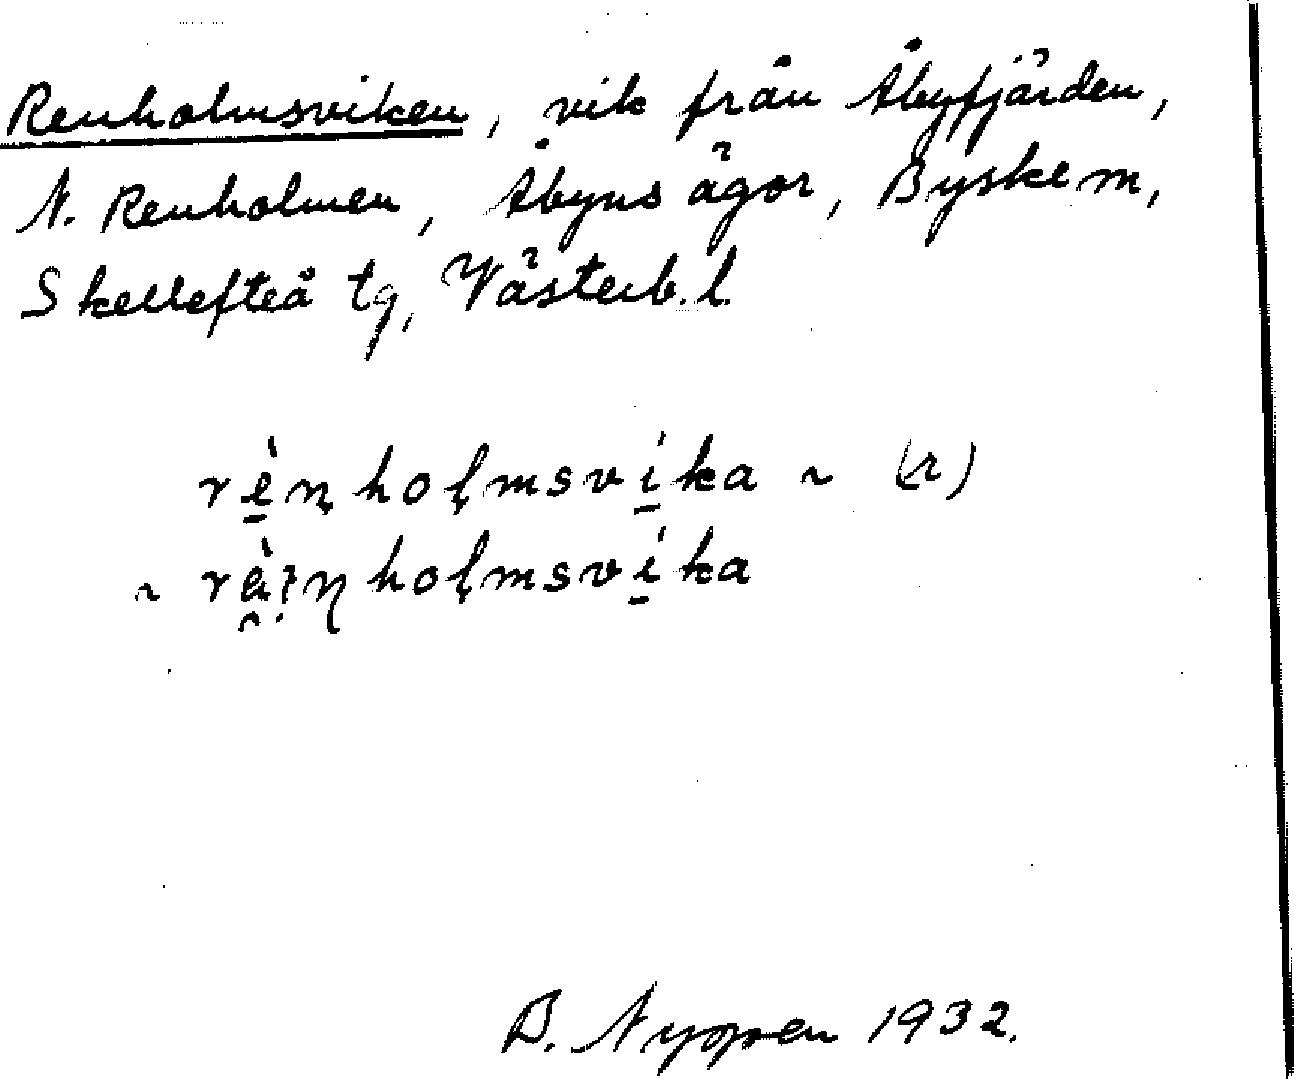 Renholmsviken, vik från Åbyfjärden,
N. Renholmen, Åbyns ägor, Byske m,
Skellefteå tg, Västerb. l.
rè̱n̢holmsvíka ~ (r)
~ rèiŋholmsvíka
B. Nyppen 1932.